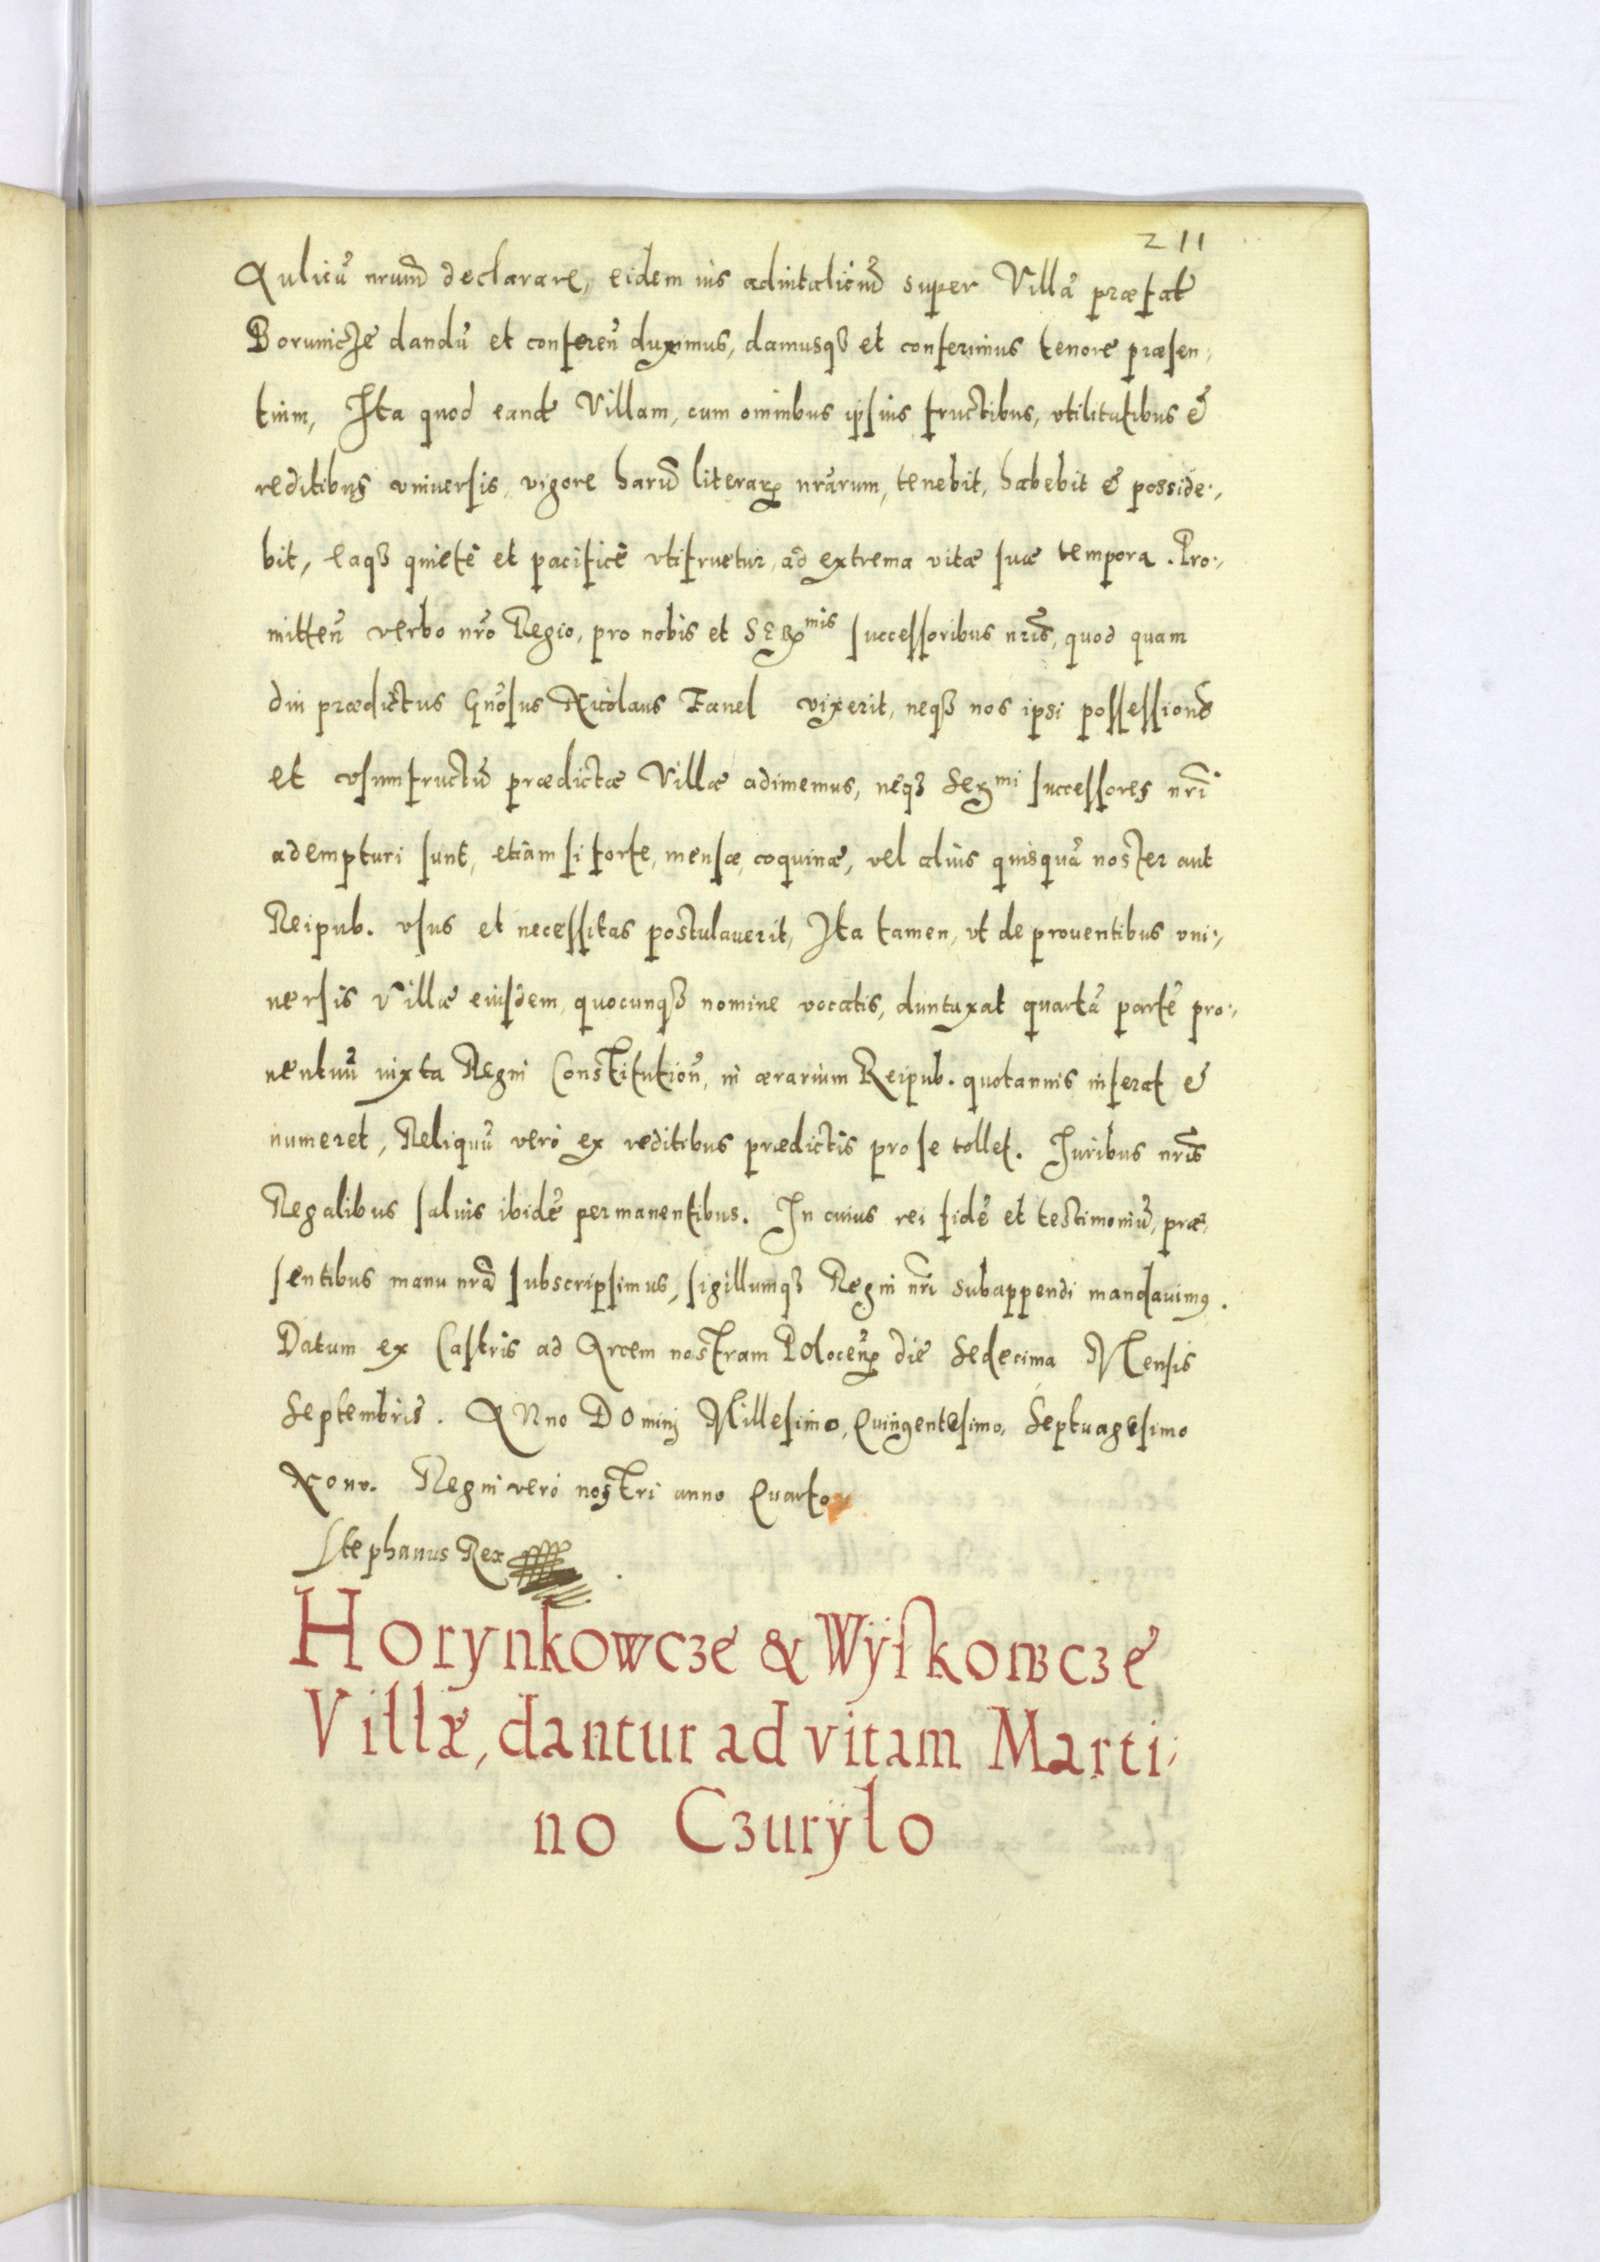 211
Aulicũ nrum̃ declarare, eidem ius aduitaliciũ super Villã præfat̃
Borunicze dandũ et conferen̄ duximus, damusqȝ et conferimus tenore præsen-
tium, Ita quod eand̃ Villam, cum omnibus ipsius fructibus, vtilitatibus &
reditibus vniuersis, vigore harũ literarꝝ nrãrum, tenebit, habebit & posside-
bit, eaqȝ quietè et pacificè vtifruetur, ad extrema vitæ suæ tempora. Pro-
mitten̄ verbo nrõ Regio, pro nobis et SERmis successoribus nrĩs, quod quam
diu prædictus Gnõsus Nicolaus Fanel vixerit, neqȝ nos ipsi possessionẽ
et vsumfructũ prædictæ Villæ adimemus, neqȝ Sermi successores nrĩ
adempturi sunt, etiam si forte, mensæ, coquinæ, vel alius quisquã noster aut
Reipub. vsus et necessitas postulauerit, Ita tamen, vt de prouentibus vni-
uersis Villæ eiusdem, quocunqȝ nomine vocatis, duntaxat quartã partẽ pro-
uentuũ iuxta Regni Constitution̄, in ærarium Reipub. quotannis inferat &
numeret, Reliquũ verò ex reditibus prædictis pro se tollet. Iuribus nrĩs
Regalibus saluis ibidẽ permanentibus. In cuius rei fidẽ et testimoniũ, præ-
sentibus manu nrã subscripsimus, sigillumqȝ Regni nrĩ subappendi mandauimꝰ.
Datum ex Castris ad Arcem nostram Polocen̄ die Sedecima Mensis
Septembris. ANno DOminj Millesimo, Quingentesimo, Septuagesimo
Nono. Regni verò nostri anno Quarto
Stephanus Rex
Horynkowcze & Wÿskowcze
Villæ, dantur ad vitam Marti-
no Czurÿlo